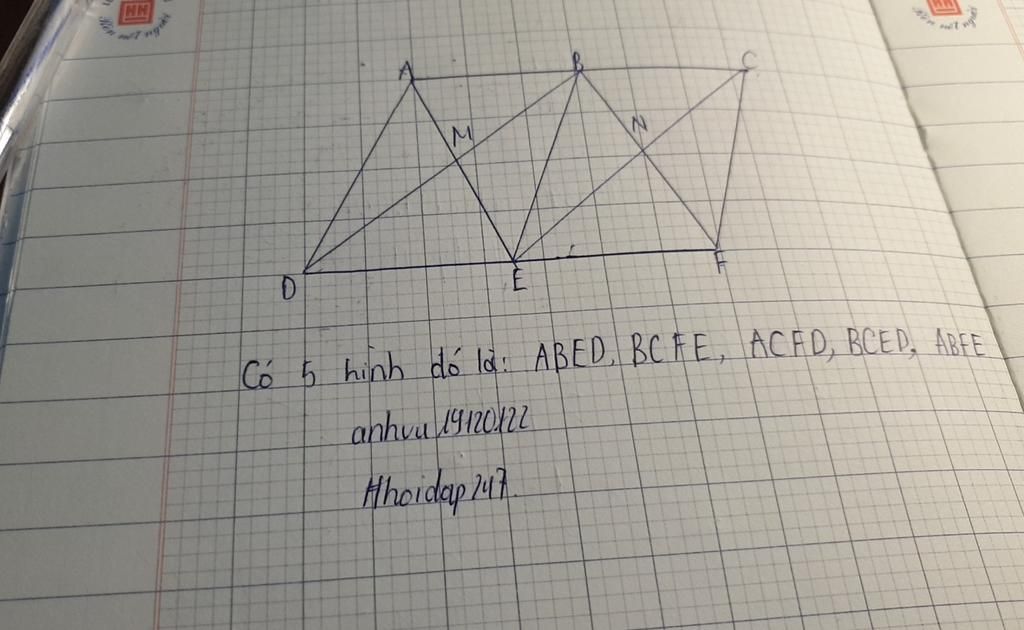 A B C
M N
D E F
Có 5 hình đó là: ABED, BCFE, ACFD, BCED, ABFE
anhvu19120122
#hoidap247.